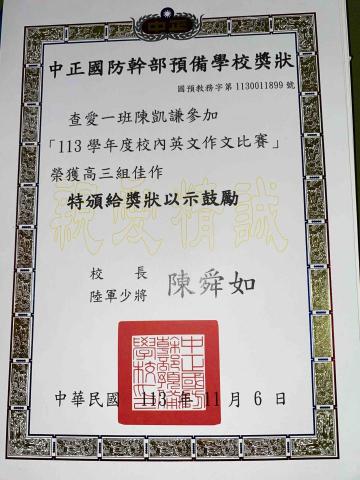 中正
中正國防幹部預備學校獎狀
國預教務字第1130011899號
查愛一班陳凱謙參加
「113學年度校內英文作文比賽」
榮獲高三組佳作
特頒給獎狀以示鼓勵
親愛精誠
校長
陸軍少將 陳舜如
中正國防幹部預備學校印
中華民國 113 年 11 月 6 日